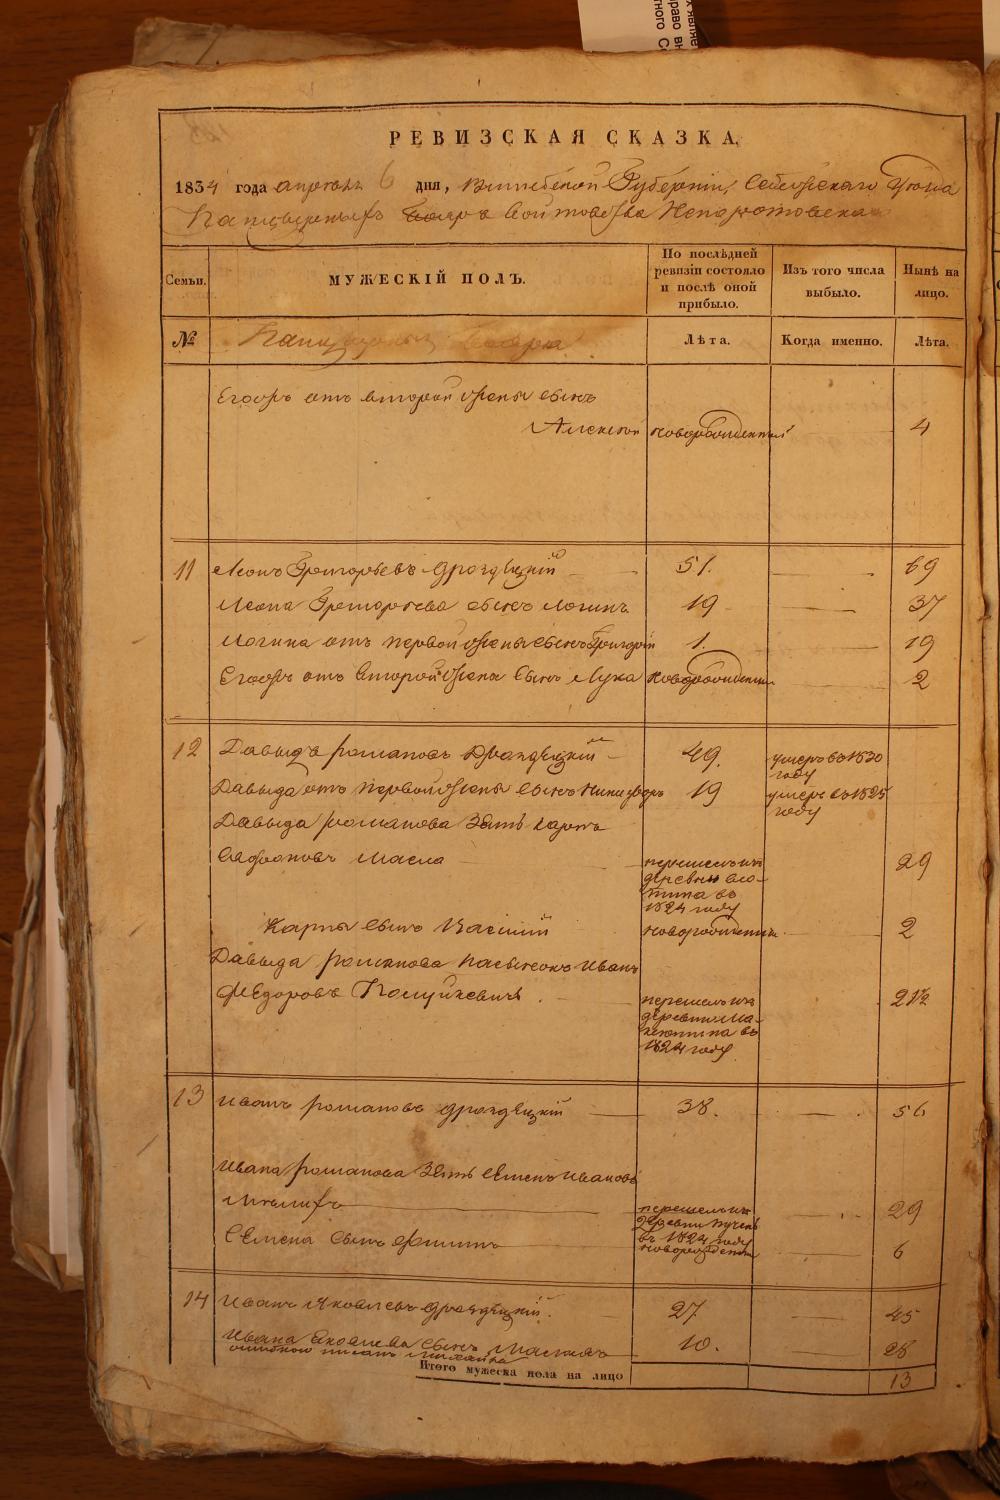 РЕВИЗСКАЯ СКАЗКА.
1834 года апреля 6 дня, Витебской Губернии, Себежскаго Уезда
Панцырныхъ Бояръ Войтовства Непоротовскаго
Семьи.
МУЖЕСКІЙ ПОЛЪ.
По послѣдней ревизіи состояло и послѣ оной прибыло.
Изъ того числа выбыло.
Нынѣ на лицо.
№
Панцырныи Бояра
Лѣта.
Когда именно.
Лѣта.
Егоръ отъ второй жены сынъ
Алексей новорожденный 4
11 Леонъ Григорьевъ Дроздецкій 51. 69
Леона Григорьева сынъ Логинъ 19 37
Логина отъ первой жены сынъ Григорій 1. 19
Егоръ отъ второй жены сынъ Лука новорожденный 2
12 Давыдъ Романовъ Дроздецкій 49. умеръ въ 1830 году
Давыда отъ первой жены сынъ Никифоръ 19 умеръ въ 1825 году
Давыда Романова Зять Карпъ
Сафроновъ Масла 29
перешелъ изъ
деревни
въ
1824 году
Карпа сынъ Василий новорожденный 2
Давыда Романова пасынокъ Иванъ
Федоровъ 21½
перешелъ изъ
деревни
въ
1824 году
13 Иванъ Романовъ Дроздецкій 38. 56
Ивана Романова Зять Семенъ Ивановъ
29
перешелъ изъ
деревни
въ 1824 году
Семена сынъ Филипъ новорожденный 6
14 Иванъ Яковлевъ Дроздецкій. 27 45
Ивана Яковлева сынъ 10. 28
Итого мужеска пола на лицо 13